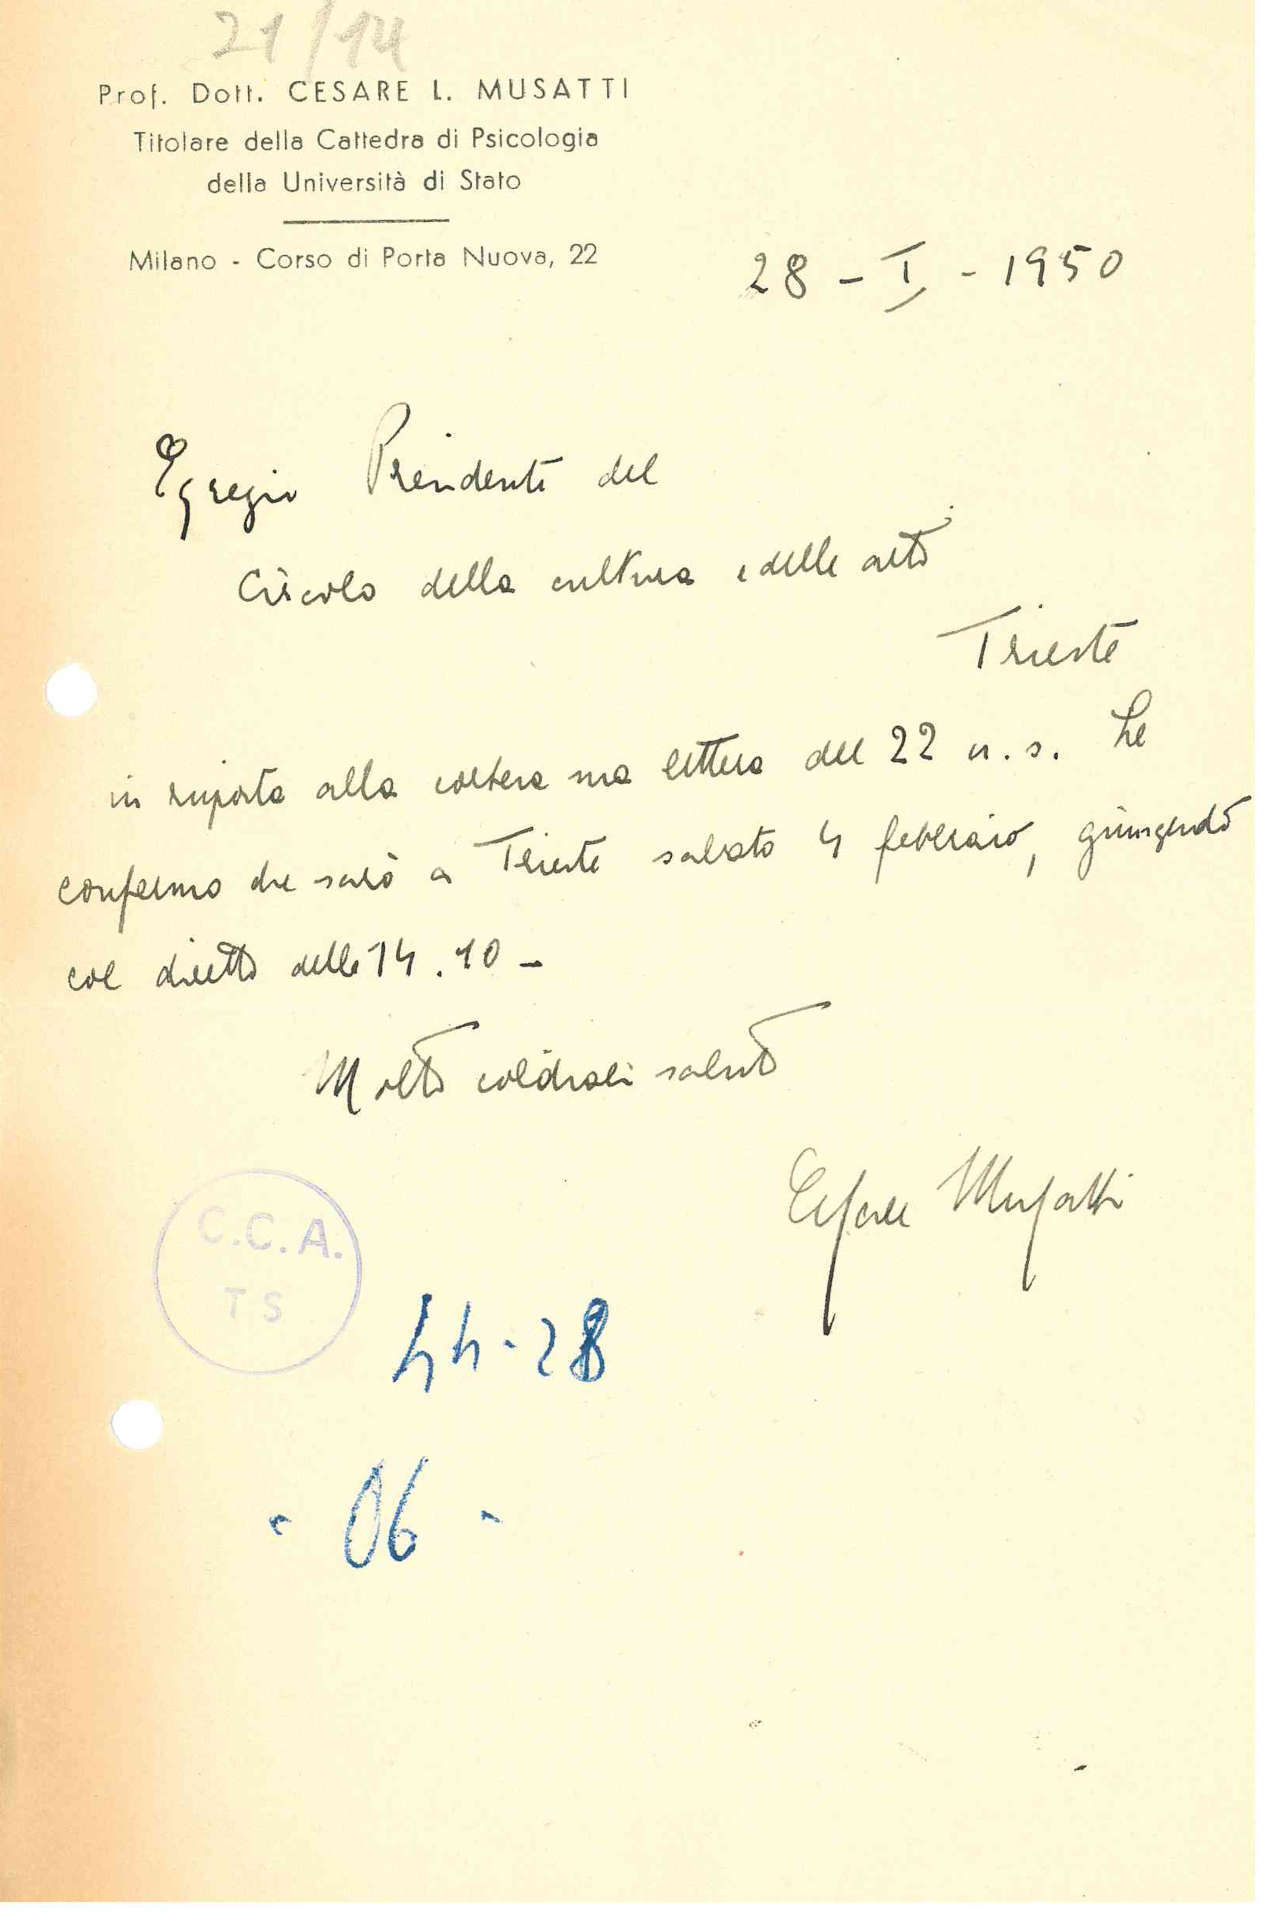 21/14
Prof. Dott. CESARE L. MUSATTI
Titolare della Cattedra di Psicologia
della Università di Stato
Milano - Corso di Porta Nuova, 22
28 - I - 1950
Egregio Presidente del
Circolo della cultura e delle arti
Trieste
in risposta alla cortese sua lettera del 22 u. s. Le
confermo che sarò a Trieste sabato 4 febbraio, giungendo
col diretto delle 14.10 -
Molti cordiali saluti
Cesare Musatti
C.C.A.
TS
44-28
- 06 -